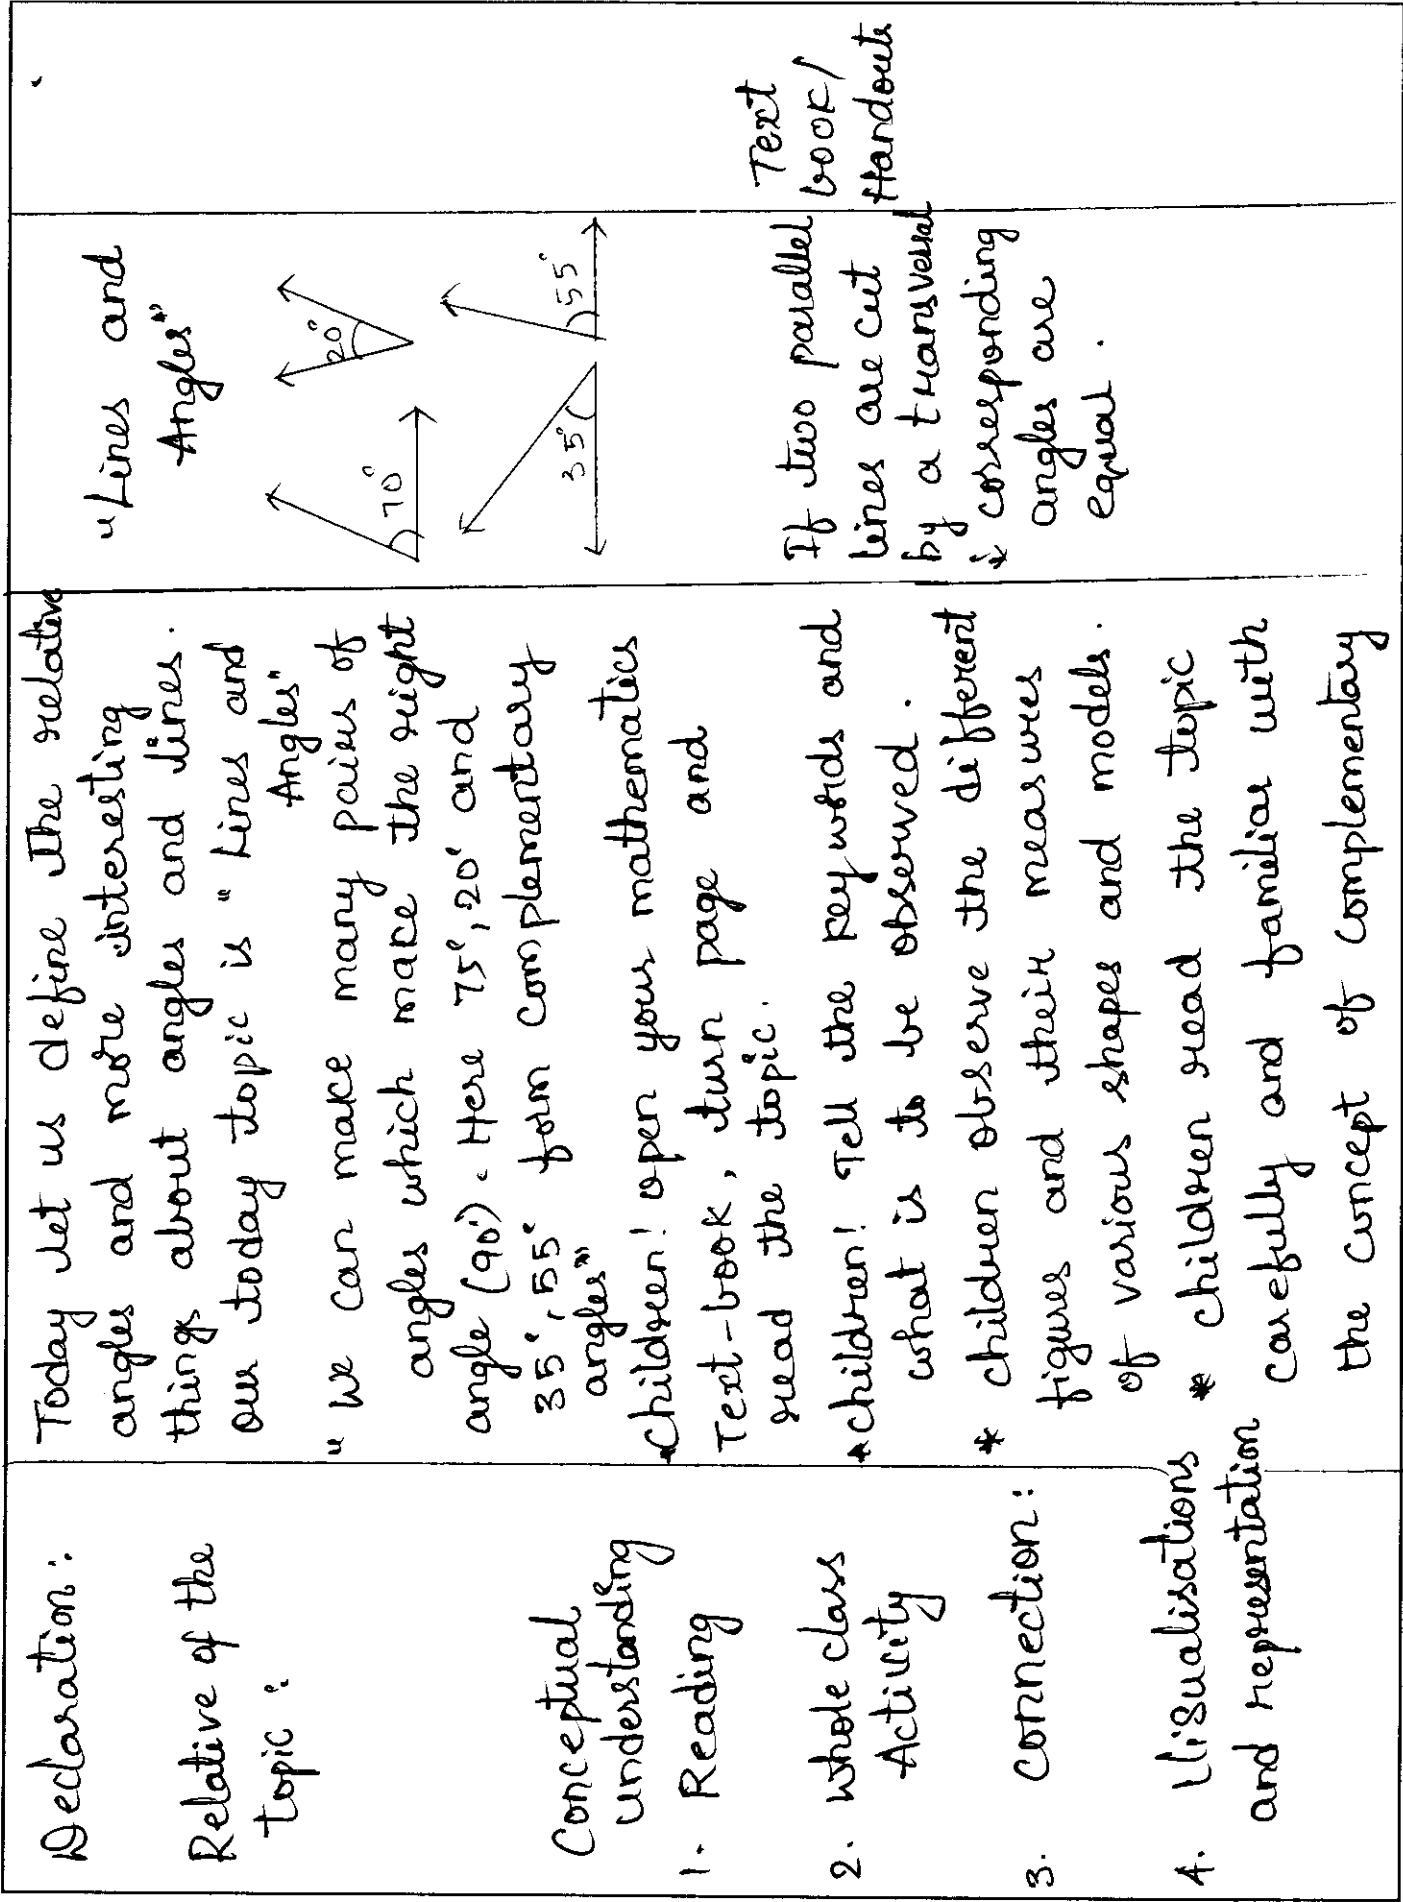 Declaration:
Relative of the
topic:
Conceptual
understanding
1. Reading
2. Whole class
Activity
3. Connection:
4. Visualisations
and representation
Today let us define the relative
angles and more interesting
things about angles and lines.
our today topic is "Lines and
Angles"
"We can make many pairs of
angles which make the right
angle (90°). Here 75°, 20° and
35°, 55° form complementary
angles"
*Children! open your mathematics
Text-book, turn page and
read the topic.
*children! Tell the key words and
what is to be observed.
* children observe the different
figures and their measures
of various shapes and models.
* children read the topic
carefully and familiar with
the concept of complementary
"Lines and
Angles"
70°
20°
35°
55°
If two parallel
lines are cut
by a transversal
* corresponding
angles are
equal.
Text
book/
Handouts